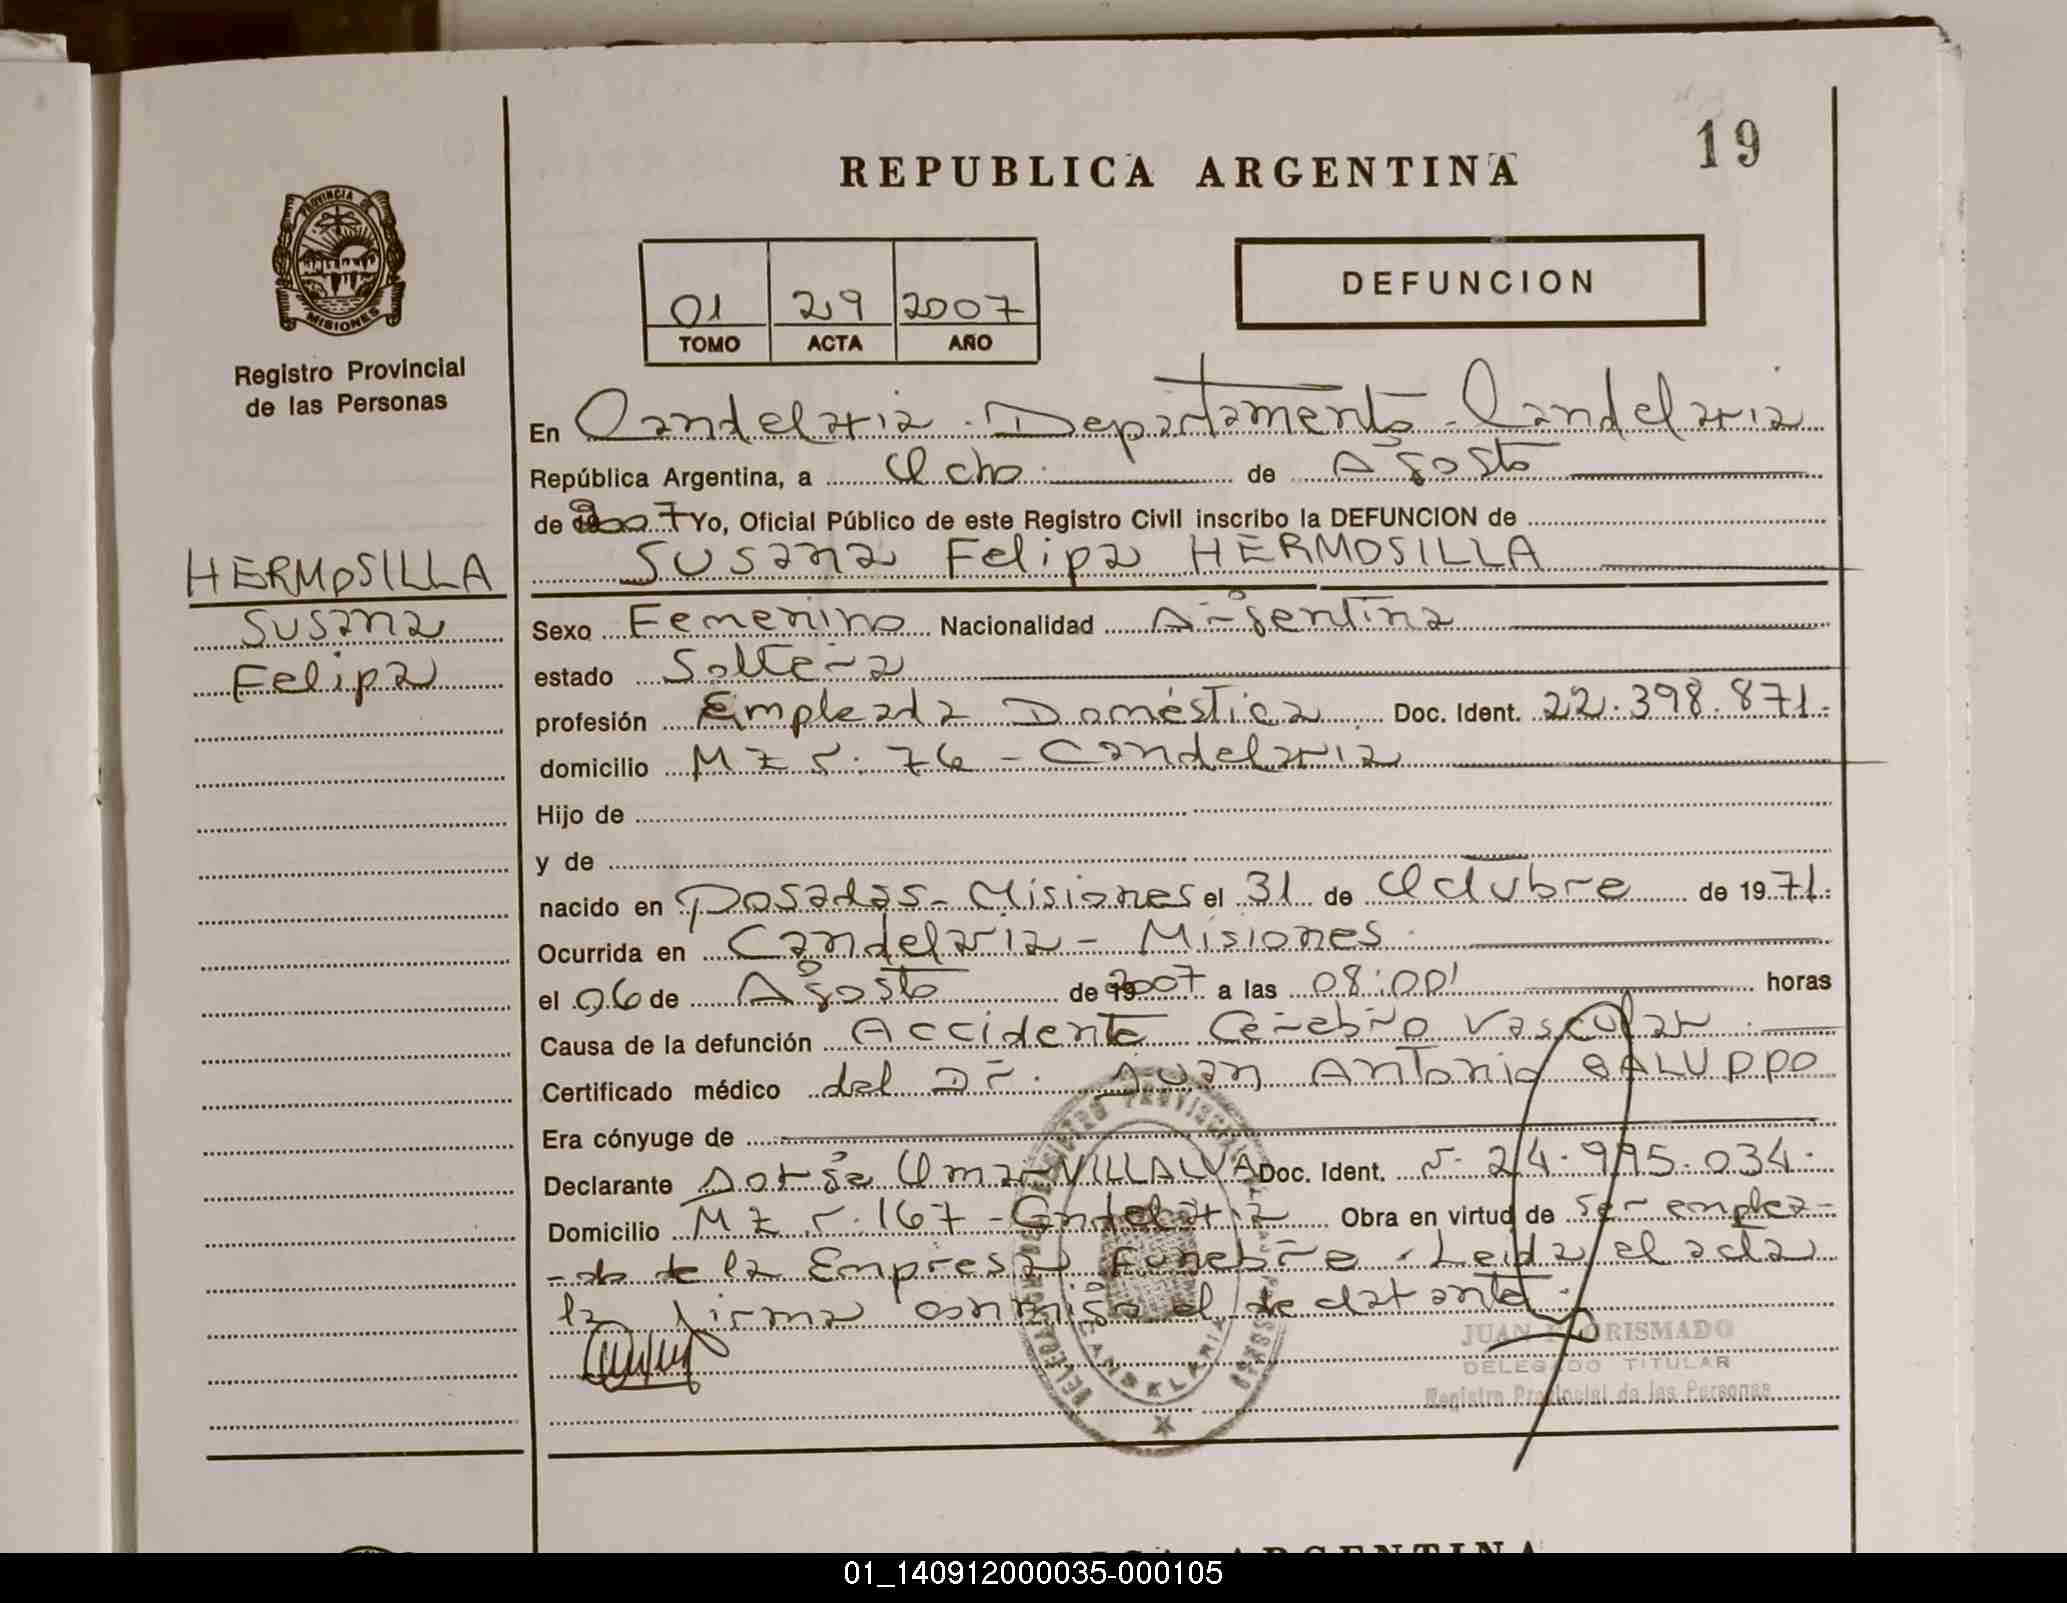 19
REPUBLICA ARGENTINA
PROVINCIA DE
MISIONES
Registro Provincial
de las Personas
01 29 2007
TOMO ACTA AÑO
DEFUNCION
En Candelaria - Departamento - Candelaria
República Argentina, a Ocho de Agosto
de 2007 Yo, Oficial Público de este Registro Civil inscribo la DEFUNCION de
Susana Felipa HERMOSILLA
HERMOSILLA
Susana
Felipa
Sexo Femenino Nacionalidad Argentina
estado Soltera
profesión Empleada Doméstica Doc. Ident. 22.398.871.
domicilio MZ 76 - Candelaria
Hijo de
y de
nacido en Posadas - Misiones el 31 de Octubre de 1971.
Ocurrida en Candelaria - Misiones
el 06 de Agosto de 2007 a las 08:00' horas
Causa de la defunción Accidente Cerebro Vascular
Certificado médico del Dr. Juan Antonio GALUPPO
Era cónyuge de
Declarante Jorge Omar VILLALVA Doc. Ident. 24.995.034.
Domicilio MZ 167 - Candelaria Obra en virtud de ser emplea-
-do de la Empresa Funebre. Leida el acta
la firma conmigo el declarante.
CANDELARIA
JUAN CRISMADO
DELEGADO TITULAR
Registro Provincial de las Personas
REPUBLICA ARGENTINA
01_140912000035-000105